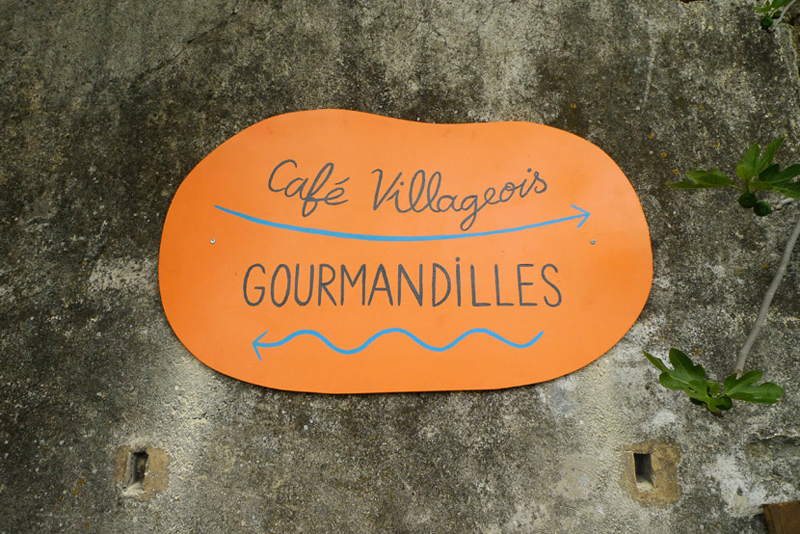 Café Villageois
GOURMANDiLLES